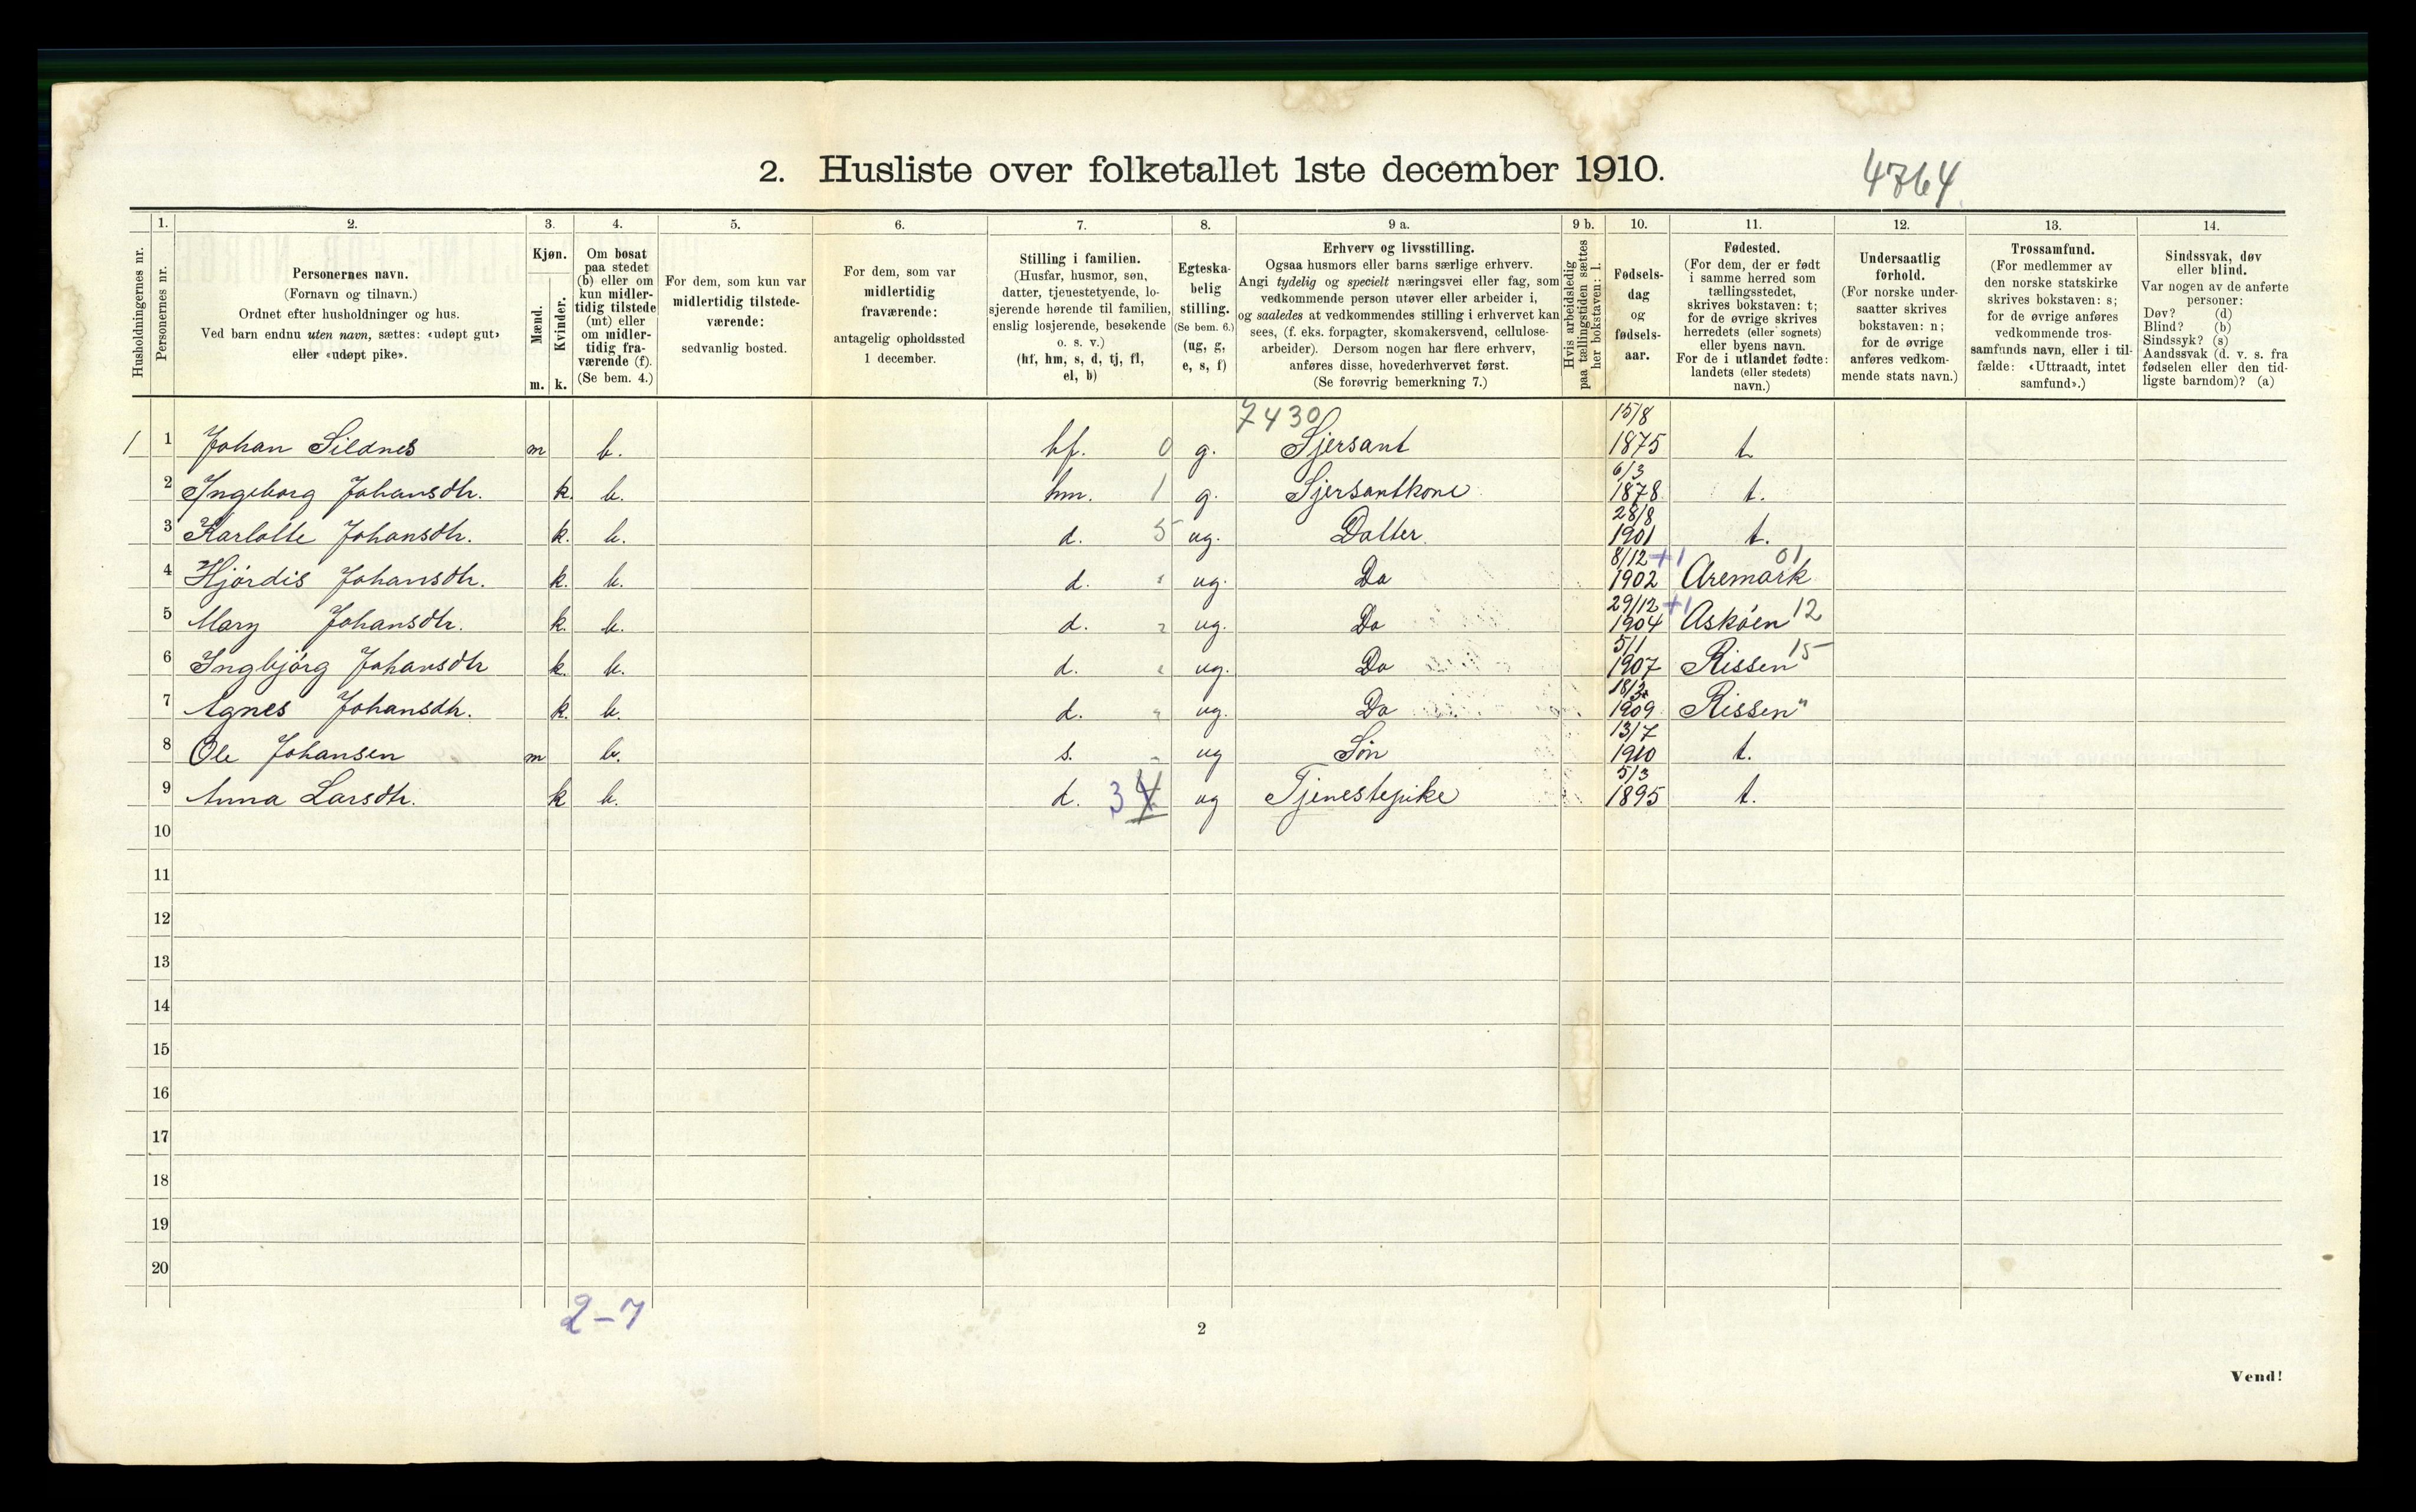 2. Husliste over folketallet 1ste december 1910.
4764
Husholdningernes nr.
1.
Personernes nr.
2.
Personernes navn.
(Fornavn og tilnavn.)
Ordnet efter husholdninger og hus.
Ved barn endnu uten navn, sættes: «udøpt gut»
eller «udøpt pike».
3.
Kjøn.
Mænd.
Kvinder.
m. k.
4.
Om bosat
paa stedet
(b) eller om
kun midler-
tidig tilstede
(mt) eller
om midler-
tidig fra-
værende (f).
(Se bem. 4.)
5.
For dem, som kun var
midlertidig tilstede-
værende:
sedvanlig bosted.
6.
For dem, som var
midlertidig
fraværende:
antagelig opholdssted
1 december.
7.
Stilling i familien.
(Husfar, husmor, søn,
datter, tjenestetyende, lo-
sjerende hørende til familien,
enslig losjerende, besøkende
o. s. v.)
(hf, hm, s, d, tj, fl,
el, b)
8.
Egteska-
belig
stilling.
(Se bem. 6.)
(ug, g,
e, s, f)
9 a.
Erhverv og livsstilling.
Ogsaa husmors eller barns særlige erhverv.
Angi tydelig og specielt næringsvei eller fag, som
vedkommende person utøver eller arbeider i,
og saaledes at vedkommendes stilling i erhvervet kan
sees, (f. eks. forpagter, skomakersvend, cellulose-
arbeider). Dersom nogen har flere erhverv,
anføres disse, hovederhvervet først.
(Se forøvrig bemerkning 7.)
9 b.
Hvis arbeidsledig
paa tællingstiden sættes
her bokstaven: l.
10.
Fødsels-
dag
og
fødsels-
aar.
11.
Fødested.
(For dem, der er født
i samme herred som
tællingsstedet,
skrives bokstaven: t;
for de øvrige skrives
herredets (eller sognets)
eller byens navn.
For de i utlandet fødte:
landets (eller stedets)
navn.)
12.
Undersaatlig
forhold.
(For norske under-
saatter skrives
bokstaven: n;
for de øvrige
anføres vedkom-
mende stats navn.)
13.
Trossamfund.
(For medlemmer av
den norske statskirke
skrives bokstaven: s;
for de øvrige anføres
vedkommende tros-
samfunds navn, eller i til-
fælde: «Uttraadt, intet
samfund».)
14.
Sindssvak, døv
eller blind.
Var nogen av de anførte
personer:
Døv? (d)
Blind? (b)
Sindssyk? (s)
Aandssvak (d. v. s. fra
fødselen eller den tid-
ligste barndom)? (a)
7430 15/8
1 1 Johan Sildnes m b. hf. 0 g. Sjersant 1875 t.
6/3
2 Ingeborg Johansdtr. k. b. hm. 1 g. Sjersantkone 1878 t.
28/8
3 Karlotte Johansdtr. k. b. d. 5 ug. Datter 1901 t.
8/12 +1 01
4 Hjørdis Johansdtr. k. b. d. " ug. Do 1902 Aremark
29/12 +1
5 Mary Johansdtr. k. b. d. " ug. Do 1904 Askøen 12
5/1
6 Ingbjørg Johansdtr k. b. d. " ug. Do 1907 Rissen 15
18/3
7 Agnes Johansdtr. k. b. d. " ug. Do 1909 Rissen "
13/7
8 Ole Johansen m b. s. " ug Søn 1910 t.
5/3
9 Anna Larsdtr. k b. d. 3 4 ug Tjenestepike 1895 t.
10
11
12
13
14
15
16
17
18
19
20
2-7
2
Vend!